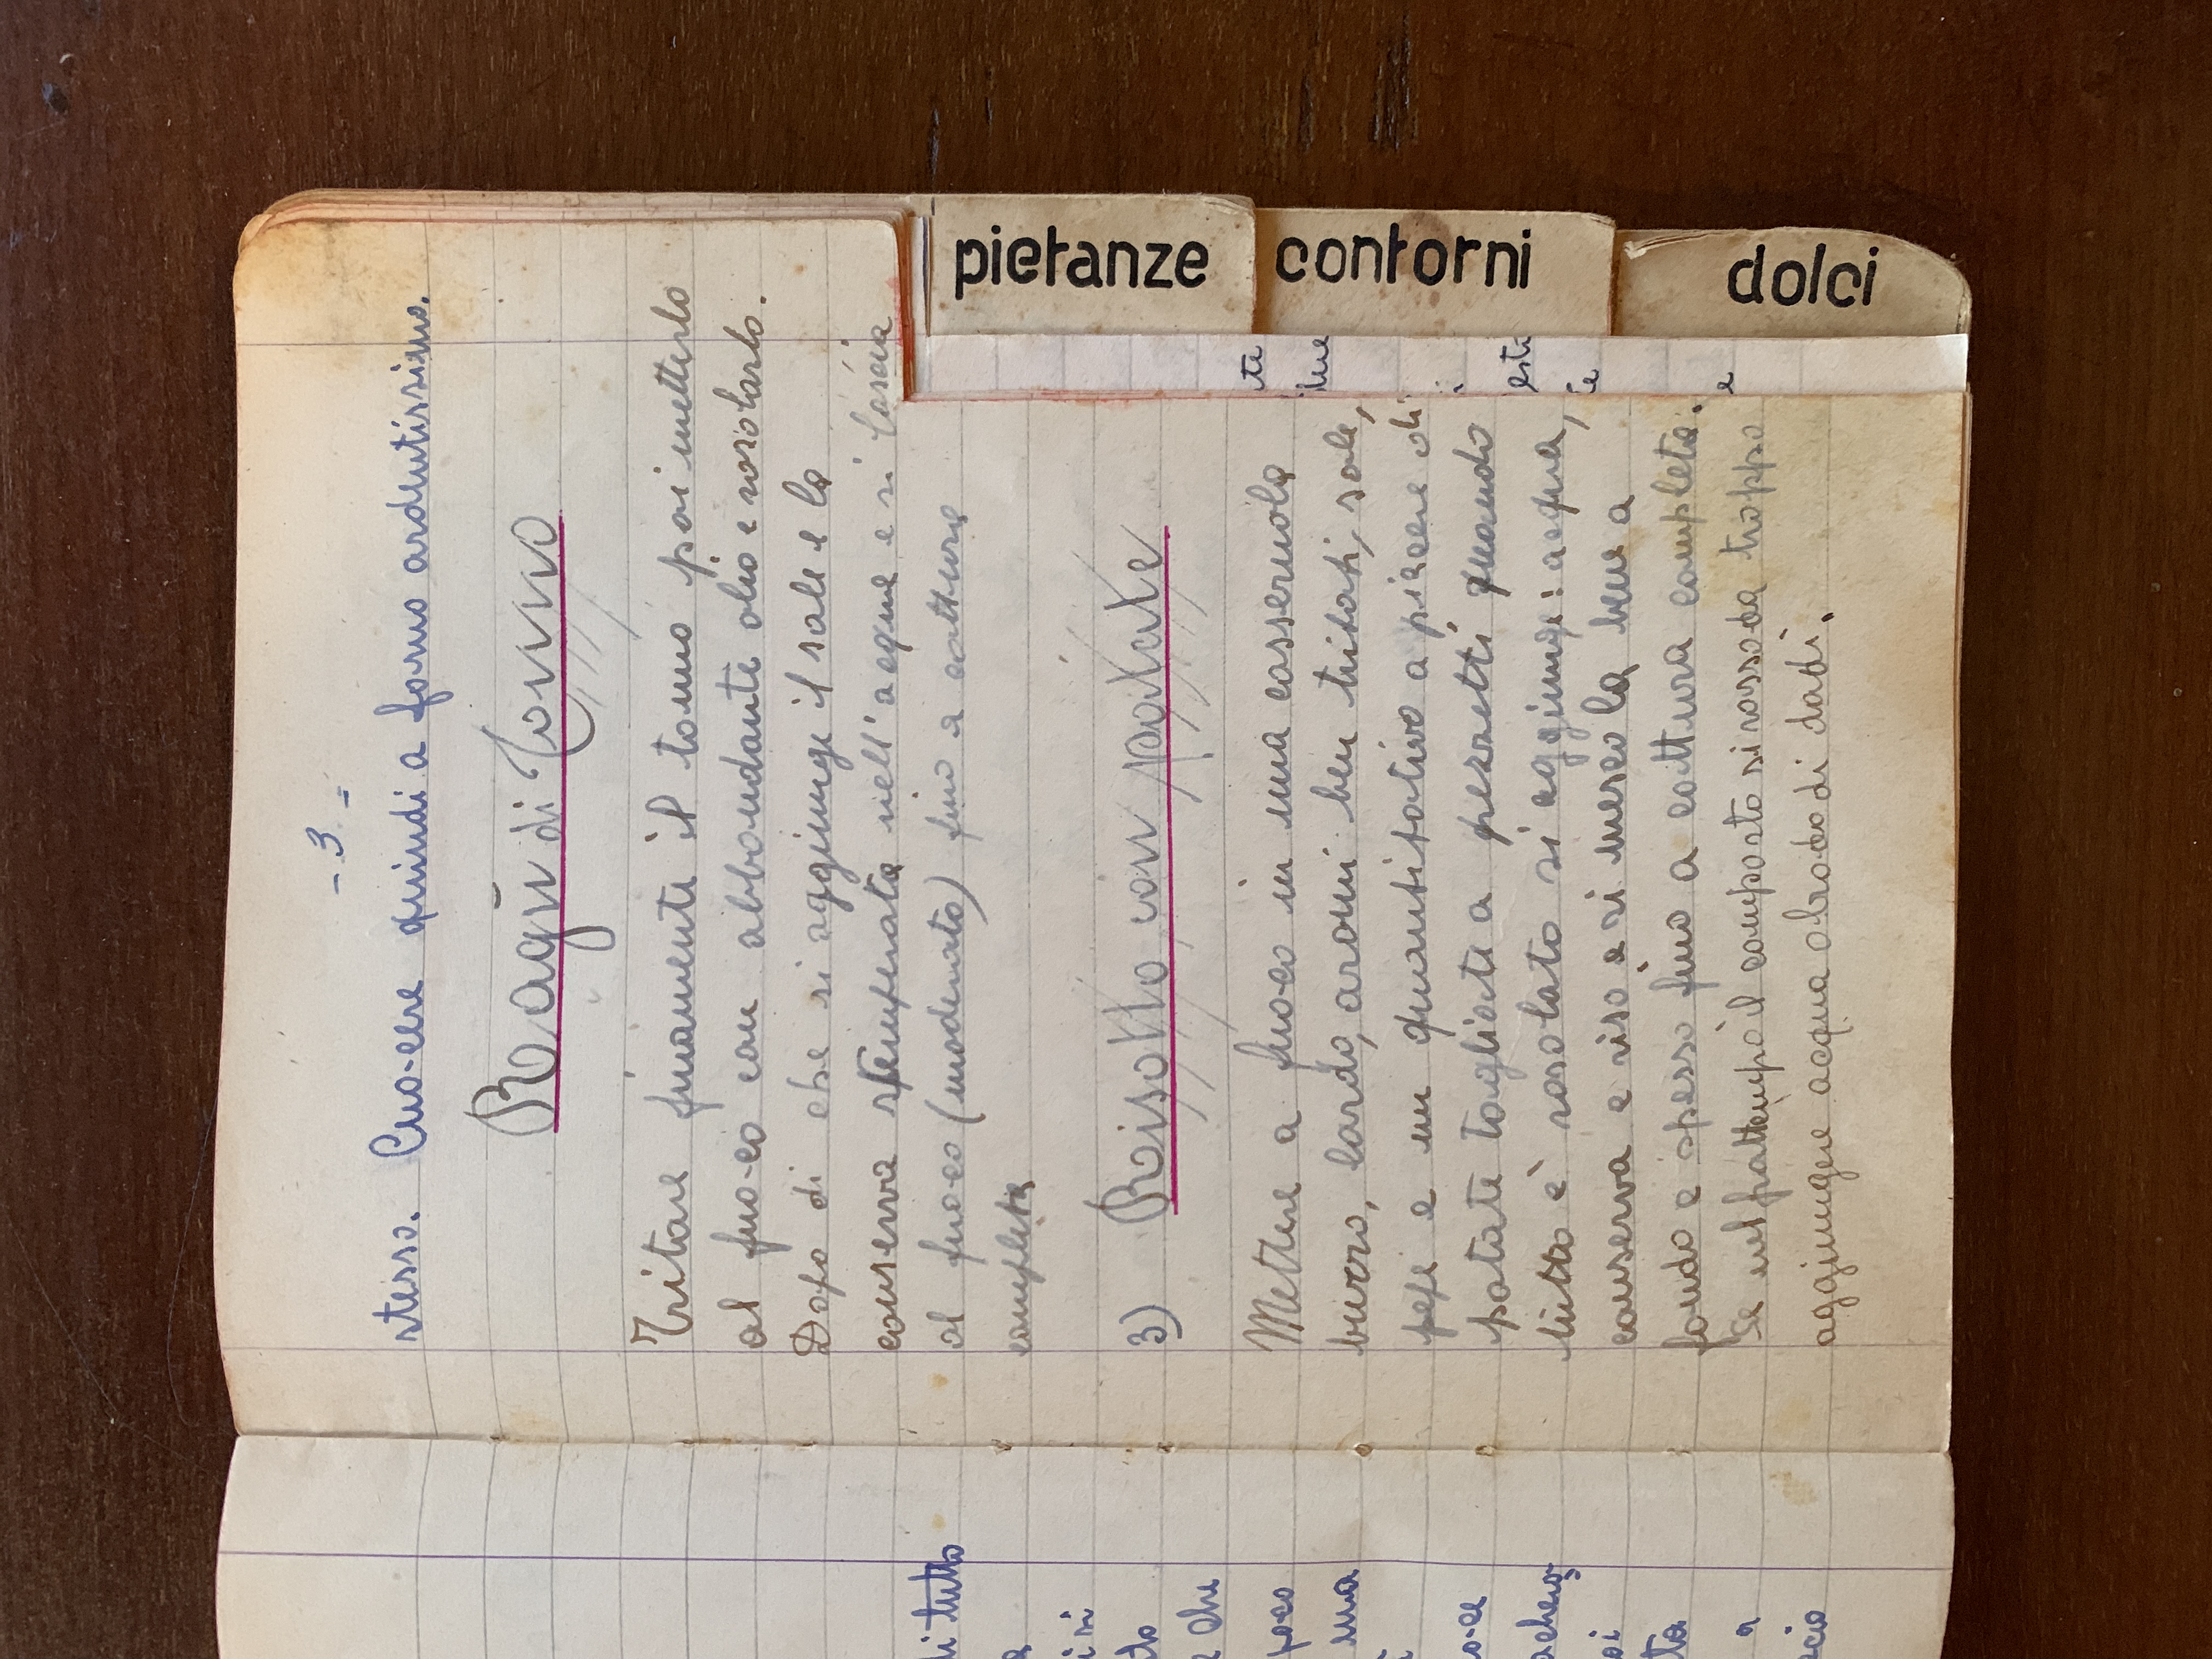 - 3. =
stesso. Cuocere quindi a forno ardentissimo.
Ragū di Tonno
Tritare finamente il tonno poi metterlo
al fuoco con abbondante olio e rosolarlo.
Dopo di che si aggiunge il sale e la
conserva stemperata nell'acqua e si lascia
al fuoco (moderato) fino a cottura
completa
3) Risotto con patate
Mettere a fuoco in una casseruola
burro, lardo, aromi ben tritati, sale,
pepe e un quantitativo a piacere di
patate tagliate a pezzetti quando
tutto è rosolato si aggiunge: acqua,
conserva e riso e si mescola bene a
fondo e spesso fino a cottura completa.
Se nel frattempo il composto si rassoda troppo
aggiungere acqua o brodo di dadi.
di tutto
i si
che
poco
una
oi
ta
a
te
este
te
e
pietanze
contorni
dolci